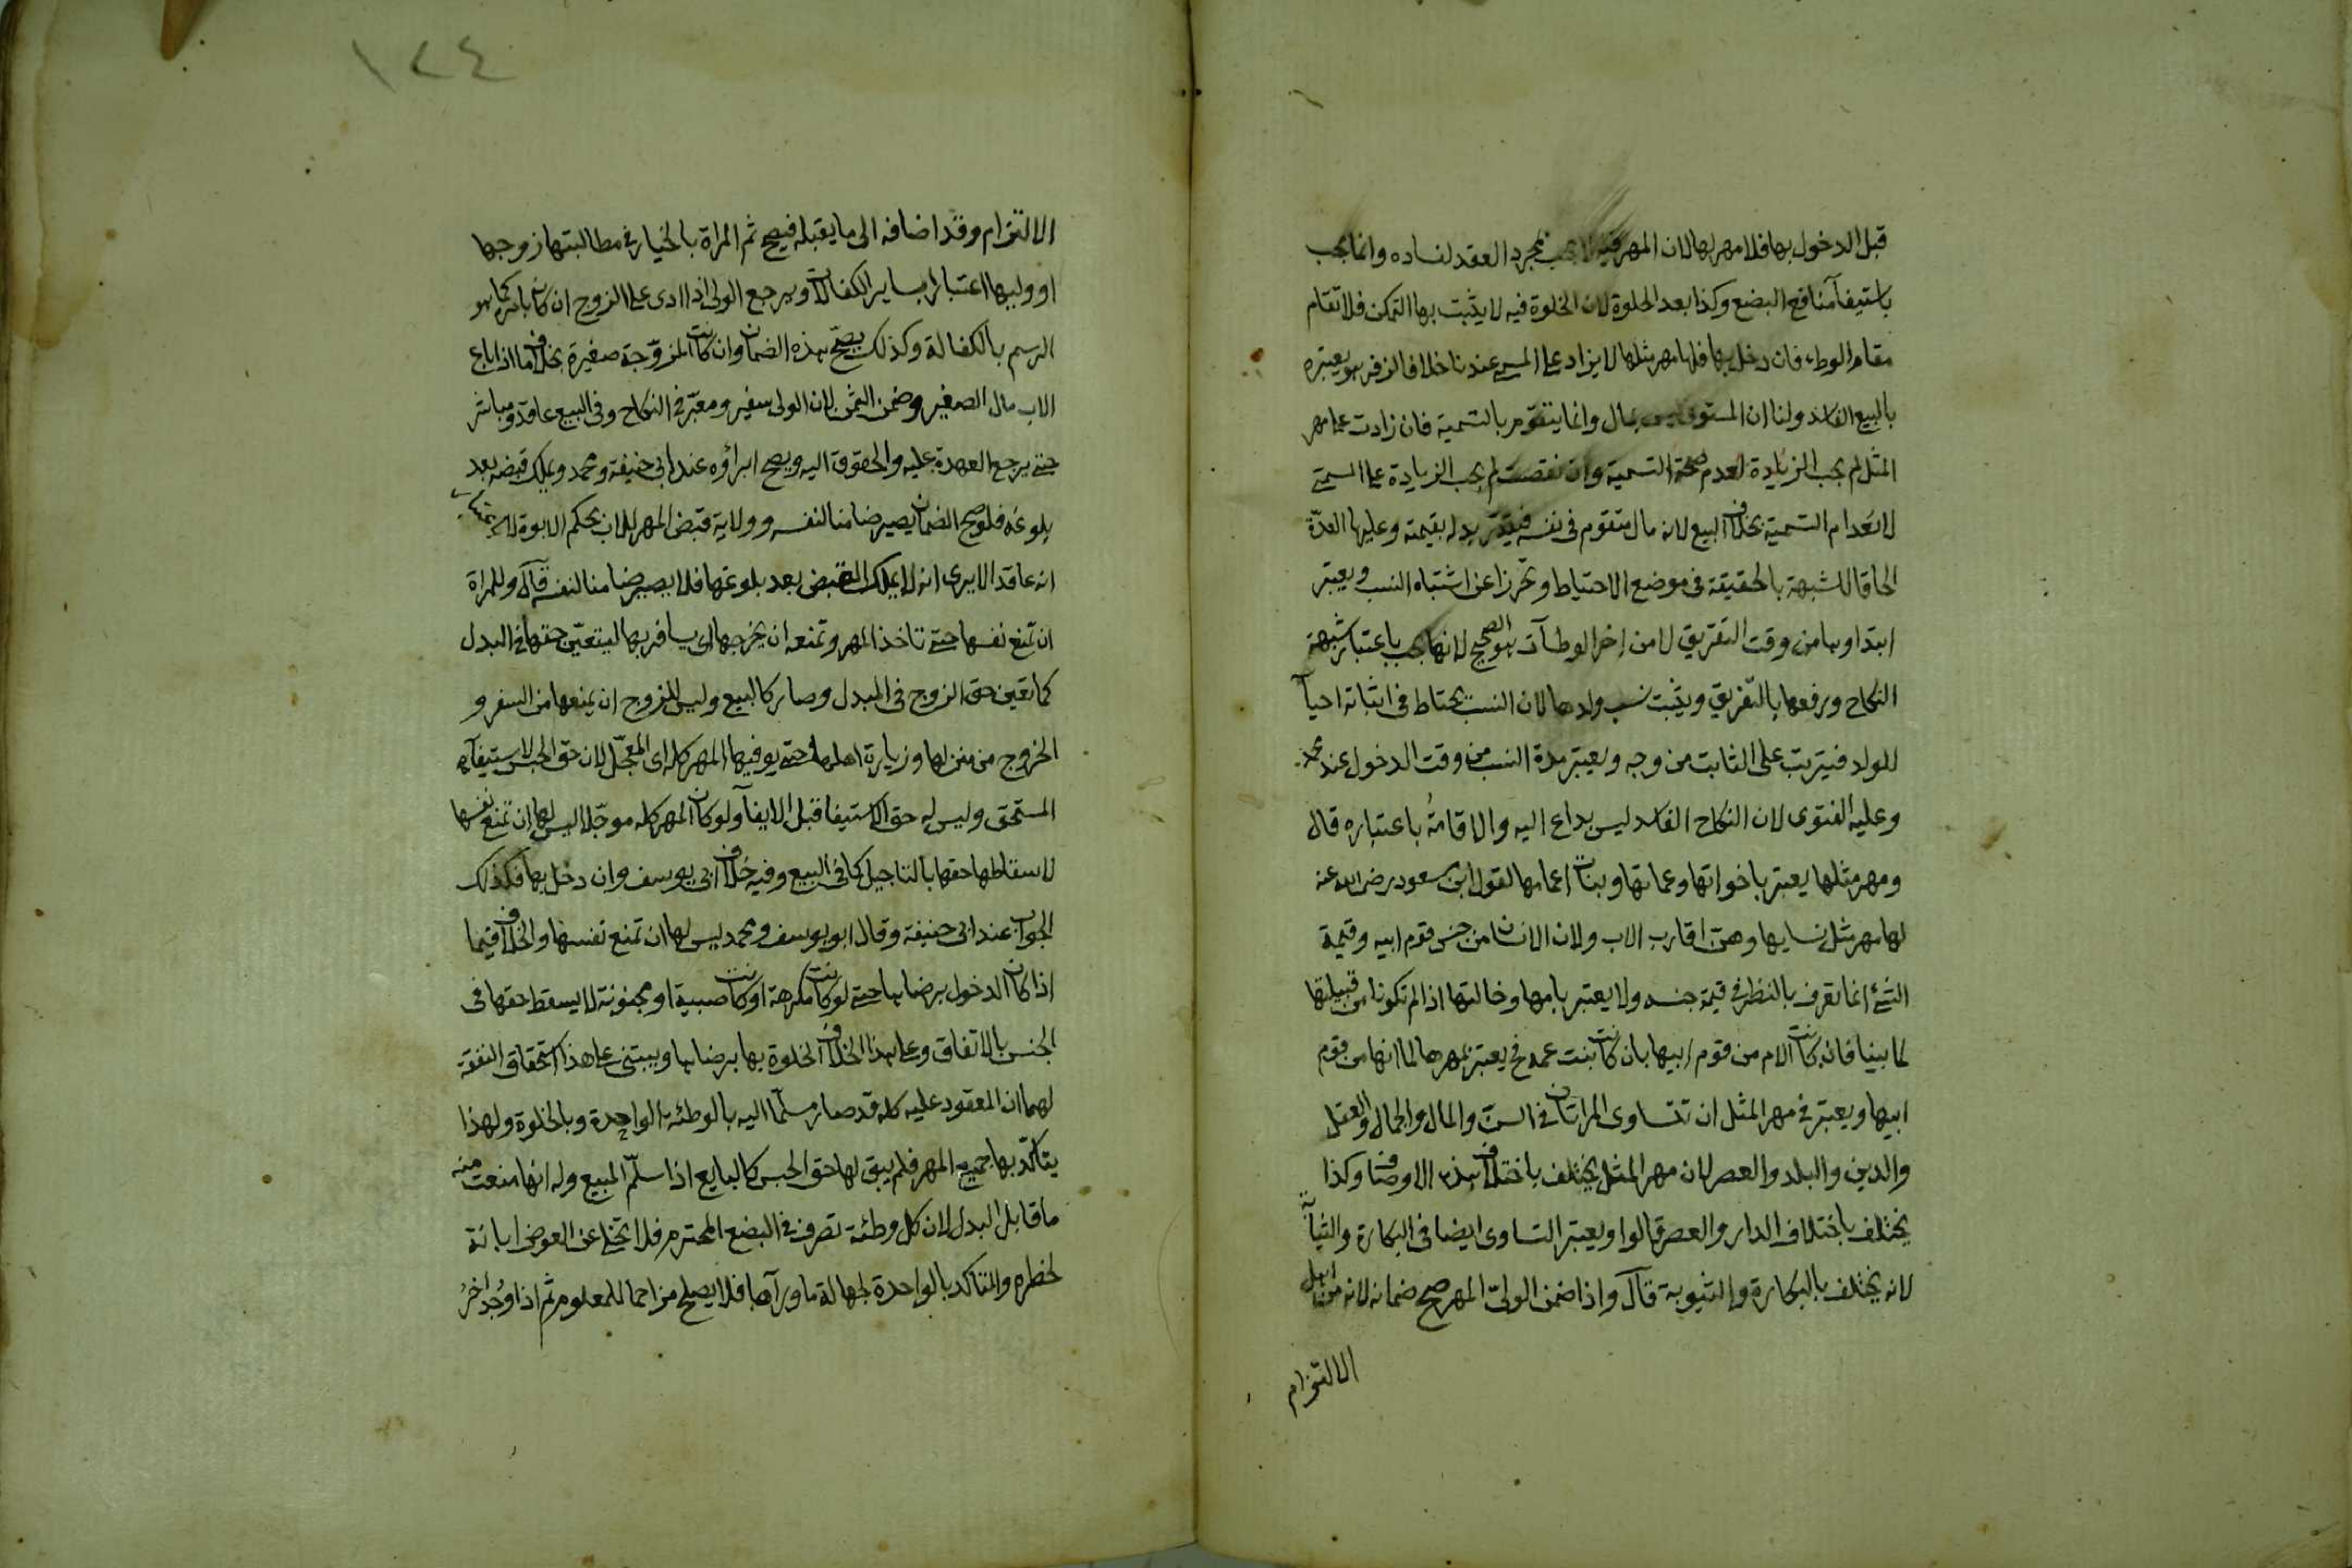 قبل الدخول بها فلا مهر لها لان المهر فيه لا يجب بمجرد العقد لفساده وانما يجب
باستيفآ منافع البضع وكذا بعد الخلوة لان الخلوة فيه لا يثبت بها التمكن فلا تقام
مقام الوطء فان دخل بها فلها مهر مثلها لا يزاد على المسمى عندنا خلافا لزفر هو يعتبره
بالبيع الفاسد ولنا ان المستوفى ليس بمال وانما يتقوم بالتسمية فان زادت على مهر
المثل لم يجب الزيادة لعدم صحة التسمية وان نقصت لم يجب الزيادة على المسمى
لانعدام التسمية بخلاف البيع لانه مال متقوم في نفسه فيتقدر بدله بقيمته وعليها العدة
الحاقا للشبهة بالحقيقة في موضع الاحتياط وتحرزا عن اشتباه النسب ويعتبر
ابتداوها من وقت التفريق لا من اخر الوطآت هو الصحيح لانها يجب باعتبار شبهة
النكاح ورفعها بالتفريق ويثبت نسب ولدها لان النسب يحتاط في اثباته احيآ
للولد فيترتب على الثابت من وجه ويعتبر مدة النسب من وقت الدخول عند محمد
وعليه الفتوى لان النكاح الفاسد ليس بداع اليه والاقامة باعتباره قال
ومهر مثلها يعتبر باخواتها وعماتها وبنات اعمامها لقول ابن مسعود رضى الله عنه
لها مهر مثل نسايها وهن اقارب الاب ولان الانسان من جنس قوم ابيه وقيمة
الشئ انما تعرف بالنظر في قيمة جنسه ولا يعتبر بامها وخالتها اذا لم تكونا من قبيلتها
لما بينا فان كانت الام من قوم ابيها بان كانت بنت عمه فح يعتبر بمهرها لما انها من قوم
ابيها ويعتبر في مهر المثل ان تتساوى المراتان في السن والمال والجمال والعقل
والدين والبلد والعصر لان مهر المثل يختلف باختلاف هذه الاوصاف وكذا
يختلف باختلاف الدار والعصر قالوا ويعتبر التساوى ايضا في البكارة والثيابة
لانه يختلف بالبكارة والثيوبة قآل واذا ضمن الولي المهر صح ضمانه لانه من اهل
الالتزام
١٢٤
الالتزام وقد اضافه الى ما يقبله فيصح ثم المراة بالخيار في مطالبتها زوجها
او وليها اعتبارا بساير الكفالات ويرجع الولى اذا ادى على الزوج ان كان بامره كما هو
الرسم بالكفالة وكذلك يصح هذه الضمان وان كانت المزوجة صغيرة بخلاف ما اذا باع
الاب مال الصغير وضمن الثمن لان الولى سفير ومعبر في النكاح وفي البيع عاقد ومباشر
حتى يرجع العهدة عليه والحقوق اليه ويصح ابراؤه عند ابى حنيفة ومحمد ويملك قبضه بعد
بلوغه فلو صح الضمان يصير ضامنا لنفسه وولاية قبض المهر للاب بحكم الابوة لا باعتبار
انه عاقد الا يرى انه لا يملك القبض بعد بلوغها فلا يصير ضامنا لنفسه قآل وللمراة
ان تمنع نفسها حتى تاخذ المهر وتمنعه ان يخرجها اى يسافر بها ليتعين حقها في البدل
كما تعين حق الزوج في المبدل وصار كالبيع وليس للزوج ان يمنعها من السفر و
الخروج من منزلها وزيارة اهلها حتى يوفيها المهر كله اى المعجل لان حق الحبس لاستيفآء
المستحق وليس له حق الاستيفا قبل الايفآ ولو كان المهر كله موجلا ليس لها ان تمنع نفسها
لاسقاطها حقها بالتاجيل كما في البيع وفيه خلاف ابى يوسف وان دخل بها فكذلك
الجواب عند ابى حنيفة وقال ابو يوسف ومحمد ليس لها ان تمنع نفسها والخلاف فيما
اذا كان الدخول برضاها حتى لو كانت مكرهة او كانت صبية او مجنونة لا يسقط حقها في
الحبس بالاتفاق وعلى هذا الخلاف الخلوة بها برضاها ويبتنى على هذا استحقاق النفقة
لهما ان المعقود عليه كله قد صار مسلما اليه بالوطئة الواحدة وبالخلوة ولهذا
يتاكد بها جميع المهر فلم يبق لها حق الحبس كالبايع اذا سلم المبيع وله انها منعت منه
ما قابل البدل لان كل وطئة تصرف في البضع المحترم فلا تخلى عن العوض ابانة
لخطره والتاكد بالواحدة لجهالة ما ورآها فلا يصلح مزاحما للمعلوم ثم اذا وجد اخر